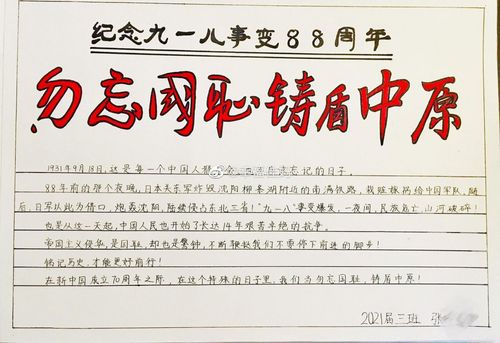 纪念九一八事变88周年
勿忘國耻铸盾中原
1931年9月18日,这是每一个中国人都忘记的日子。
88年前的那个夜晚,日本关东军炸毁沈阳柳条湖附近的南满铁路,栽赃嫁祸给中国军队。随
后,日军以此为借口,炮轰沈阳,陆续侵占东北三省!"九一八"事变爆发,一夜间,民族危亡,山河破碎!
也是从这一天起,中国人民也开始了长达14年艰苦卓绝的抗争。
帝国主义侵华,是国耻,却也是警钟,不断鞭挞我们不要停下前进的脚步!
铭记历史,才能更好前行!
在新中国成立70周年之际,在这个特殊的日子里,我们当勿忘国耻,铸盾中原!
2021届三班 张